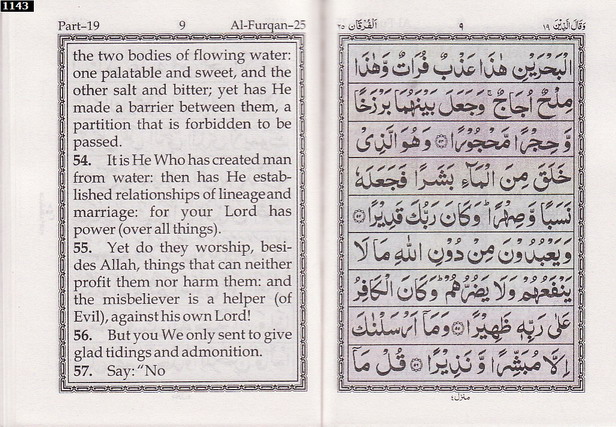 1143
Part–19 9 Al-Furqan–25
the two bodies of flowing water:
one palatable and sweet, and the
other salt and bitter; yet has He
made a barrier between them, a
partition that is forbidden to be
passed.
54. It is He Who has created man
from water: then has He estab-
lished relationships of lineage and
marriage: for your Lord has
power (over all things).
55. Yet do they worship, besi-
des Allah, things that can neither
profit them nor harm them: and
the misbeliever is a helper (of
Evil), against his own Lord!
56. But you We only sent to give
glad tidings and admonition.
57. Say: “No
وَقَالَ الَّذِيْنَ ١٩ ٩ اَلْفُرْقَان ٢٥
الْبَحْرَيْنِ هٰذَا عَذْبٌ فُرَاتٌ وَّهٰذَا
مِلْحٌ اُجَاجٌ ۚ وَجَعَلَ بَيْنَهُمَا بَرْزَخًا
وَّحِجْرًا مَّحْجُوْرًا ﴿٥٣﴾ وَهُوَ الَّذِىْ
خَلَقَ مِنَ الْمَآءِ بَشَرًا فَجَعَلَهٗ
نَسَبًا وَّصِهْرًا ؕ وَكَانَ رَبُّكَ قَدِيْرًا ﴿٥٤﴾
وَيَعْبُدُوْنَ مِنْ دُوْنِ اللّٰهِ مَا لَا
يَنْفَعُهُمْ وَلَا يَضُرُّهُمْ ؕ وَكَانَ الْكَافِرُ
عَلٰى رَبِّهٖ ظَهِيْرًا ﴿٥٥﴾ وَمَاۤ اَرْسَلْنٰكَ
اِلَّا مُبَشِّرًا وَّنَذِيْرًا ﴿٥٦﴾ قُلْ مَاۤ
منزل ٤